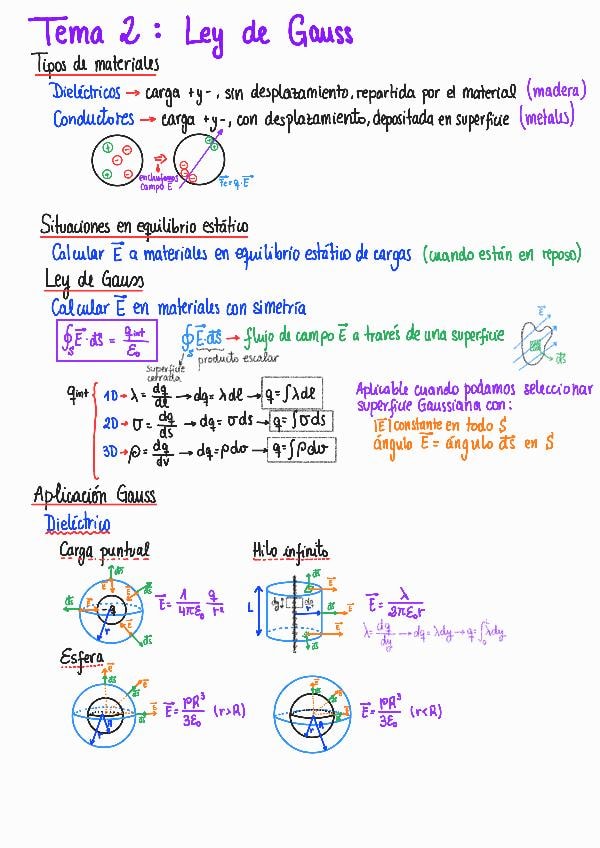 Tema 2 : Ley de Gauss
Tipos de materiales
Dieléctricos → carga + y - , sin desplazamiento, repartida por el material (madera)
Conductores → carga + y -, con desplazamiento, depositada en superficie (metales)
+ - - + - ⇒ + + - -
enchufamos
campo E⃗
F⃗e = q · E⃗
Situaciones en equilibrio estático
Calcular E⃗ a materiales en equilibrio estático de cargas (cuando están en reposo)
Ley de Gauss
Calcular E⃗ en materiales con simetría
∮s E⃗ · ds⃗ = qint/ε₀
∮s E⃗ · ds⃗ → flujo de campo E⃗ a través de una superficie
producto escalar
superficie
cerrada
E⃗
ds⃗
qint
1D → λ = dq/dl → dq = λdl → q = ∫λdl
2D → σ = dq/ds → dq = σds → q = ∫σds
3D → ρ = dq/dv → dq = ρdv → q = ∫ρdv
Aplicable cuando podamos seleccionar
superficie Gaussiana con:
|E⃗| constante en todo S
ángulo E⃗ = ángulo ds⃗ en S
Aplicación Gauss
Dieléctrico
Carga puntual
E⃗ = 1/4πε₀ q/r²
Hilo infinito
L
E⃗ = λ/2πε₀r
λ = dq/dy → dq = λdy → q = ∫₀ᴸ λdy
Esfera
E⃗ = ρR³/3ε₀ (r>R)
E⃗ = ρR³/3ε₀ (r<R)